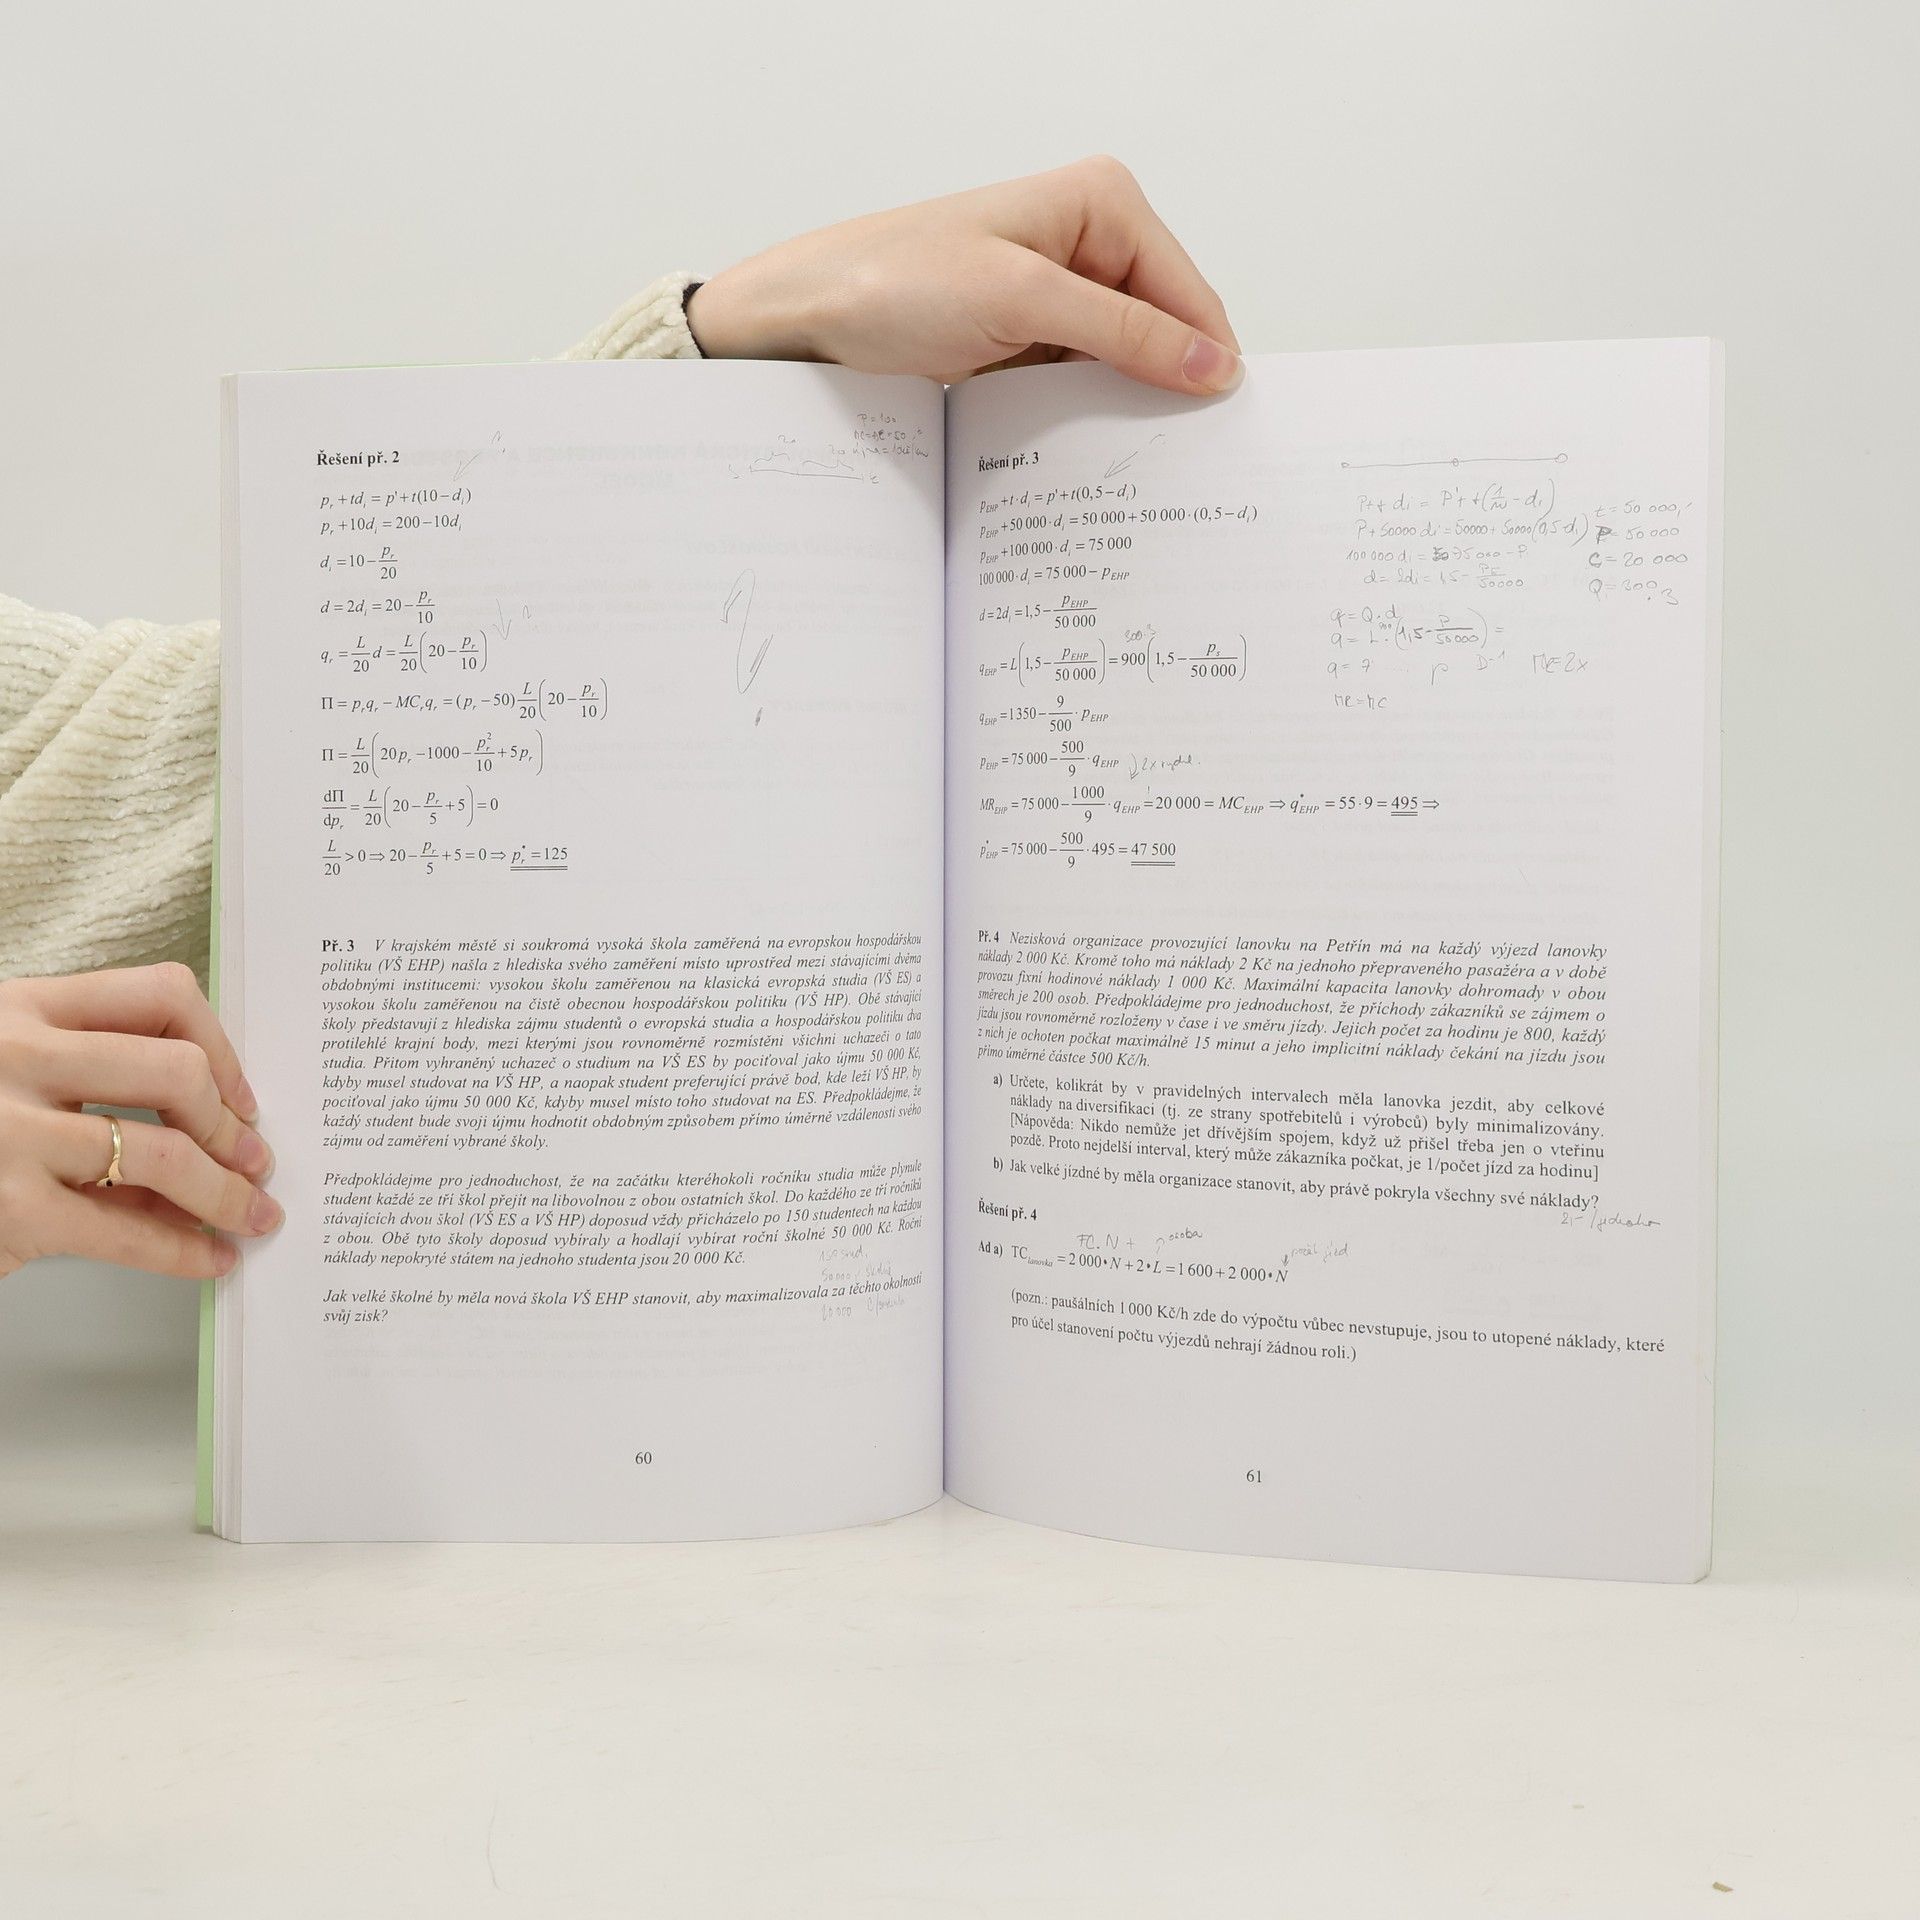 Řešení př. 2
p_r + td_i = p' + t(10 − d_i)
p_r + 10d_i = 200 − 10d_i
d_i = 10 − p_r/20
d = 2d_i = 20 − p_r/10
q_r = L/20 d = L/20 (20 − p_r/10)
Π = p_r q_r − MC_r q_r = (p_r − 50) L/20 (20 − p_r/10)
Π = L/20 (20p_r − 1000 − p_r²/10 + 5p_r)
dΠ/dp_r = L/20 (20 − p_r/5 + 5) = 0
L/20 > 0 ⇒ 20 − p_r/5 + 5 = 0 ⇒ p_r* = 125
Př. 3 V krajském městě si soukromá vysoká škola zaměřená na evropskou hospodářskou
politiku (VŠ EHP) našla z hlediska svého zaměření místo uprostřed mezi stávajícími dvěma
obdobnými institucemi: vysokou školu zaměřenou na klasická evropská studia (VŠ ES) a
vysokou školu zaměřenou na čistě obecnou hospodářskou politiku (VŠ HP). Obě stávající
školy představují z hlediska zájmu studentů o evropská studia a hospodářskou politiku dva
protilehlé krajní body, mezi kterými jsou rovnoměrně rozmístěni všichni uchazeči o tato
studia. Přitom vyhraněný uchazeč o studium na VŠ ES by pociťoval jako újmu 50 000 Kč,
kdyby musel studovat na VŠ HP, a naopak student preferující právě bod, kde leží VŠ HP, by
pociťoval jako újmu 50 000 Kč, kdyby musel místo toho studovat na ES. Předpokládejme, že
každý student bude svoji újmu hodnotit obdobným způsobem přímo úměrně vzdálenosti svého
zájmu od zaměření vybrané školy.
Předpokládejme pro jednoduchost, že na začátku kteréhokoli ročníku studia může plynule
student každé ze tří škol přejít na libovolnou z obou ostatních škol. Do každého ze tří ročníků
stávajících dvou škol (VŠ ES a VŠ HP) doposud vždy přicházelo po 150 studentech na každou
z obou. Obě tyto školy doposud vybíraly a hodlají vybírat roční školné 50 000 Kč. Roční
náklady nepokryté státem na jednoho studenta jsou 20 000 Kč.
Jak velké školné by měla nová škola VŠ EHP stanovit, aby maximalizovala za těchto okolností
svůj zisk?
60
Řešení př. 3
p_EHP + t·d_i = p' + t(0,5 − d_i)
p_EHP + 50 000·d_i = 50 000 + 50 000·(0,5 − d_i)
p_EHP + 100 000·d_i = 75 000
100 000·d_i = 75 000 − p_EHP
d = 2d_i = 1,5 − p_EHP/50 000
q_EHP = L(1,5 − p_EHP/50 000) = 900(1,5 − p_s/50 000)
q_EHP = 1350 − 9/500 · p_EHP
p_EHP = 75 000 − 500/9 · q_EHP
MR_EHP = 75 000 − 1 000/9 · q_EHP = 20 000 = MC_EHP ⇒ q*_EHP = 55·9 = 495 ⇒
p*_EHP = 75 000 − 500/9 · 495 = 47 500
t = 50 000
P = 50 000
C = 20 000
q = Q·d
MR = MC
Př. 4 Nezisková organizace provozující lanovku na Petřín má na každý výjezd lanovky
náklady 2 000 Kč. Kromě toho má náklady 2 Kč na jednoho přepraveného pasažéra a v době
provozu fixní hodinové náklady 1 000 Kč. Maximální kapacita lanovky dohromady v obou
směrech je 200 osob. Předpokládejme pro jednoduchost, že příchody zákazníků se zájmem o
jízdu jsou rovnoměrně rozloženy v čase i ve směru jízdy. Jejich počet za hodinu je 800, každý
z nich je ochoten počkat maximálně 15 minut a jeho implicitní náklady čekání na jízdu jsou
přímo úměrné částce 500 Kč/h.
a) Určete, kolikrát by v pravidelných intervalech měla lanovka jezdit, aby celkové
náklady na diversifikaci (tj. ze strany spotřebitelů i výrobců) byly minimalizovány.
[Nápověda: Nikdo nemůže jet dřívějším spojem, když už přišel třeba jen o vteřinu
pozdě. Proto nejdelší interval, který může zákazníka počkat, je 1/počet jízd za hodinu]
b) Jak velké jízdné by měla organizace stanovit, aby právě pokryla všechny své náklady?
Řešení př. 4
Ad a) TC_lanovka = 2 000•N + 2•L = 1 600 + 2 000•N
(pozn.: paušálních 1 000 Kč/h zde do výpočtu vůbec nevstupuje, jsou to utopené náklady, které
pro účel stanovení počtu výjezdů nehrají žádnou roli.)
61